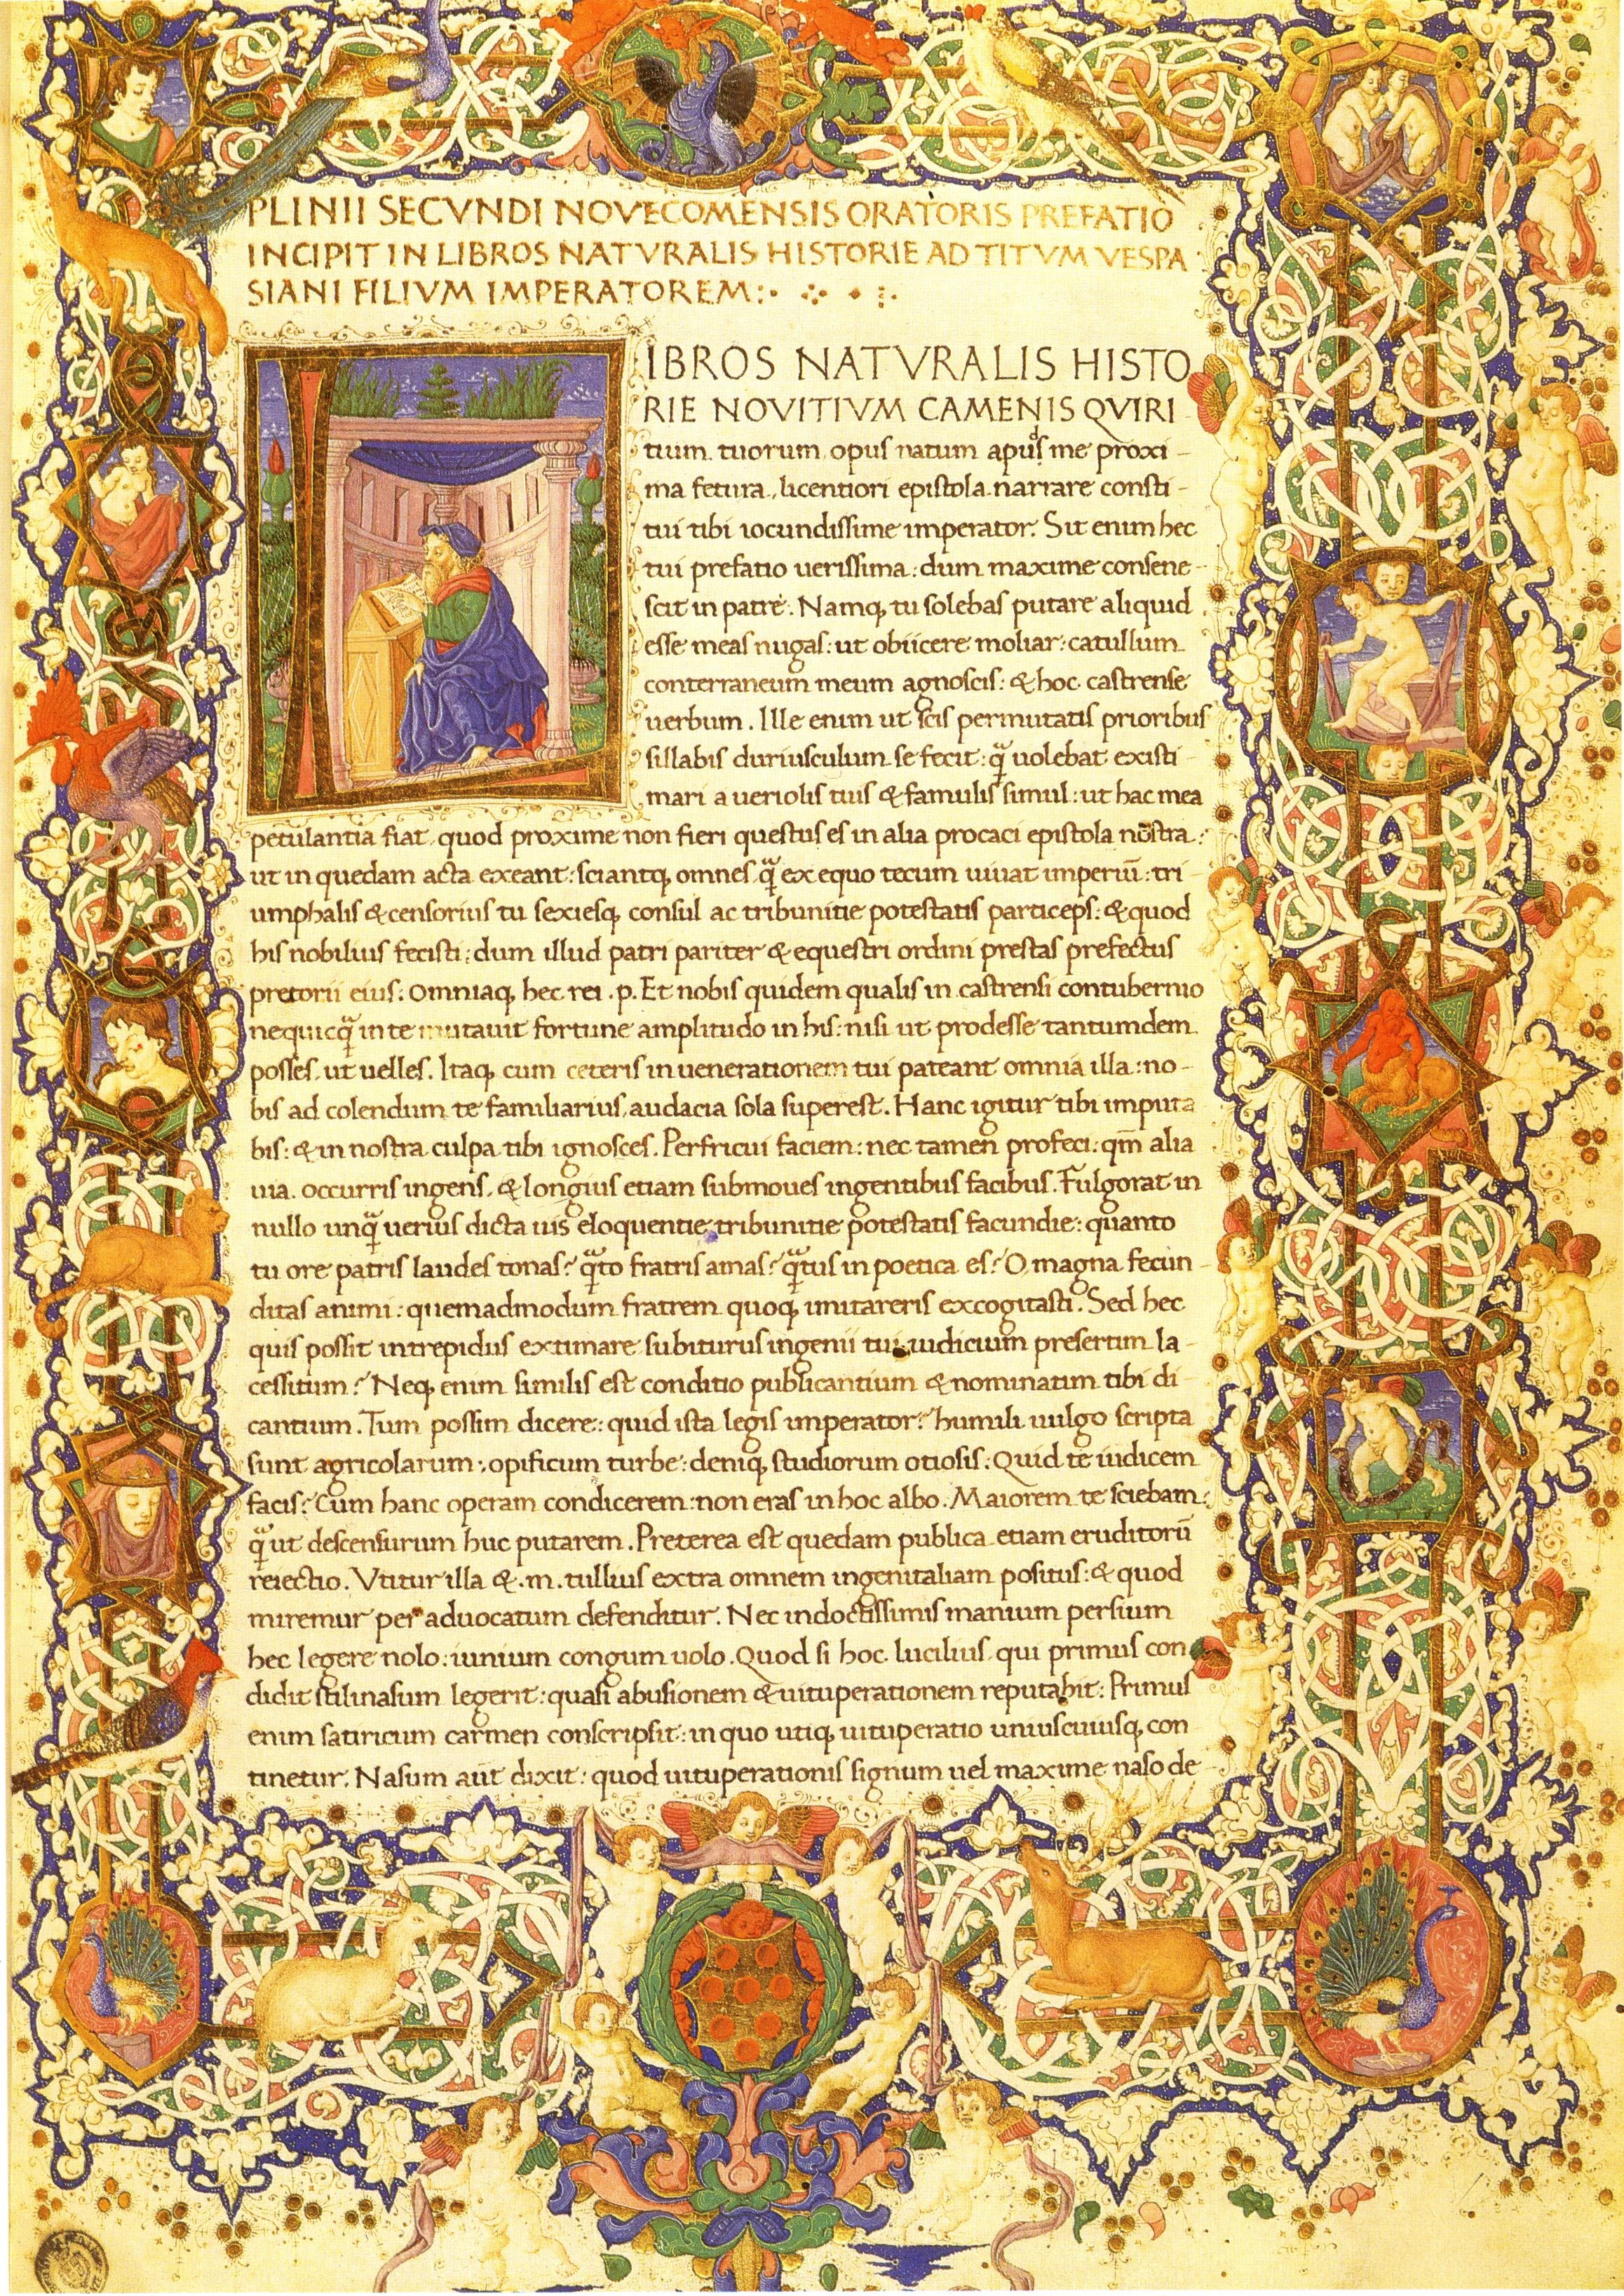 PLINII SECVNDI NOVECOMENSIS ORATORIS PREFATIO
INCIPIT IN LIBROS NATVRALIS HISTORIE AD TITVM VESPA
SIANI FILIVM IMPERATOREM:·
L
IBROS NATVRALIS HISTO
RIE NOVITIVM CAMENIS QVIRI
tium tuorum opus natum apud me proxi-
ma fetura, licentiori epistola narrare consti-
tui tibi iocundissime imperator. Sit enim hec
tui prefatio uerissima: dum maxime consene-
scit in patre. Namq; tu solebas putare aliquid
esse meas nugas: ut obiicere moliar: catullum
conterraneum meum agnoscis: & hoc castrense
uerbum. Ille enim ut scis permutatis prioribus
sillabis duriusculum se fecit: q̃ uolebat existi
mari a ueriolis tuis & famulis simul: ut hac mea
petulantia fiat, quod proxime non fieri questus es in alia procaci epistola nostra:
ut in quedam acta exeant: sciantq; omnes q̃ ex equo tecum uiuat imperiũ: tri-
umphalis & censorius tu sexiesq; consul ac tribunitie potestatis particeps: & quod
his nobilius fecisti: dum illud patri pariter & equestri ordini prestas prefectus
pretorii eius: Omniaq; hec rei .p. Et nobis quidem qualis in castrensi contubernio
nequicq̃ in te mutauit fortune amplitudo in his: nisi ut prodesse tantumdem
posses, ut uelles. Itaq; cum ceteris in uenerationem tui pateant omnia illa: no-
bis ad colendum te familiarius, audacia sola superest. Hanc igitur tibi imputa
bis: & in nostra culpa tibi ignosces. Perfricui faciem: nec tamen profeci: qm̃ alia
uia occurris ingens, & longius etiam submoues ingentibus facibus. Fulgorat in
nullo unq̃ uerius dicta uis eloquentie, tribunitie potestatis facundie: quanto
tu ore patris laudes tonas? q̃to fratris amas? q̃tus in poetica es? O magna fecun-
ditas animi: quemadmodum fratrem quoq; imitareris excogitasti. Sed hec
quis possit intrepidus extimare subiturus ingenii tui iudicium presertim la-
cessitum? Neq; enim similis est conditio publicantium & nominatim tibi di-
cantium. Tum possim dicere: quid ista legis imperator? humili uulgo scripta
sunt agricolarum:, opificum turbe: deniq; studiorum otiosis: Quid te iudicem
facis? Cum hanc operam condicerem: non eras in hoc albo. Maiorem te sciebam:
q̃ ut descensurum huc putarem. Preterea est quedam publica etiam eruditorũ
reiectio. Vtitur illa & .m. tullius extra omnem ingenitaliam positus: & quod
miremur per aduocatum defenditur. Nec indoctissimis manium persium
hec legere nolo: iunium congum uolo. Quod si hoc lucilius qui primus con
didit stilinasum legerit: quasi abusionem & uituperationem reputabit: Primus
enim satiricum carmen conscripsit: in quo utiq; uituperatio uniuscuiusq; con
tinetur. Nasum aũt dixit: quod uituperationis signum uel maxime naso de-